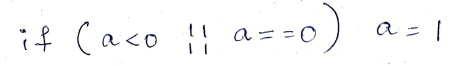 if (a<0 || a==0) a=1